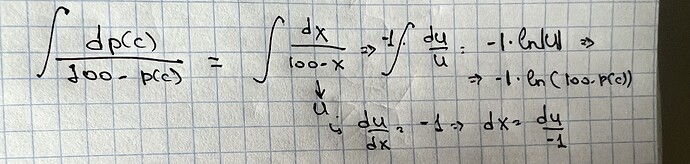 ∫ dp(c)/(100 - p(c)) = ∫ dx/(100-x) => -1·∫ du/u = -1·ln|u| =>
=> -1·ln(100-p(c))
↓
u
↳ du/dx = -1 => dx = du/-1